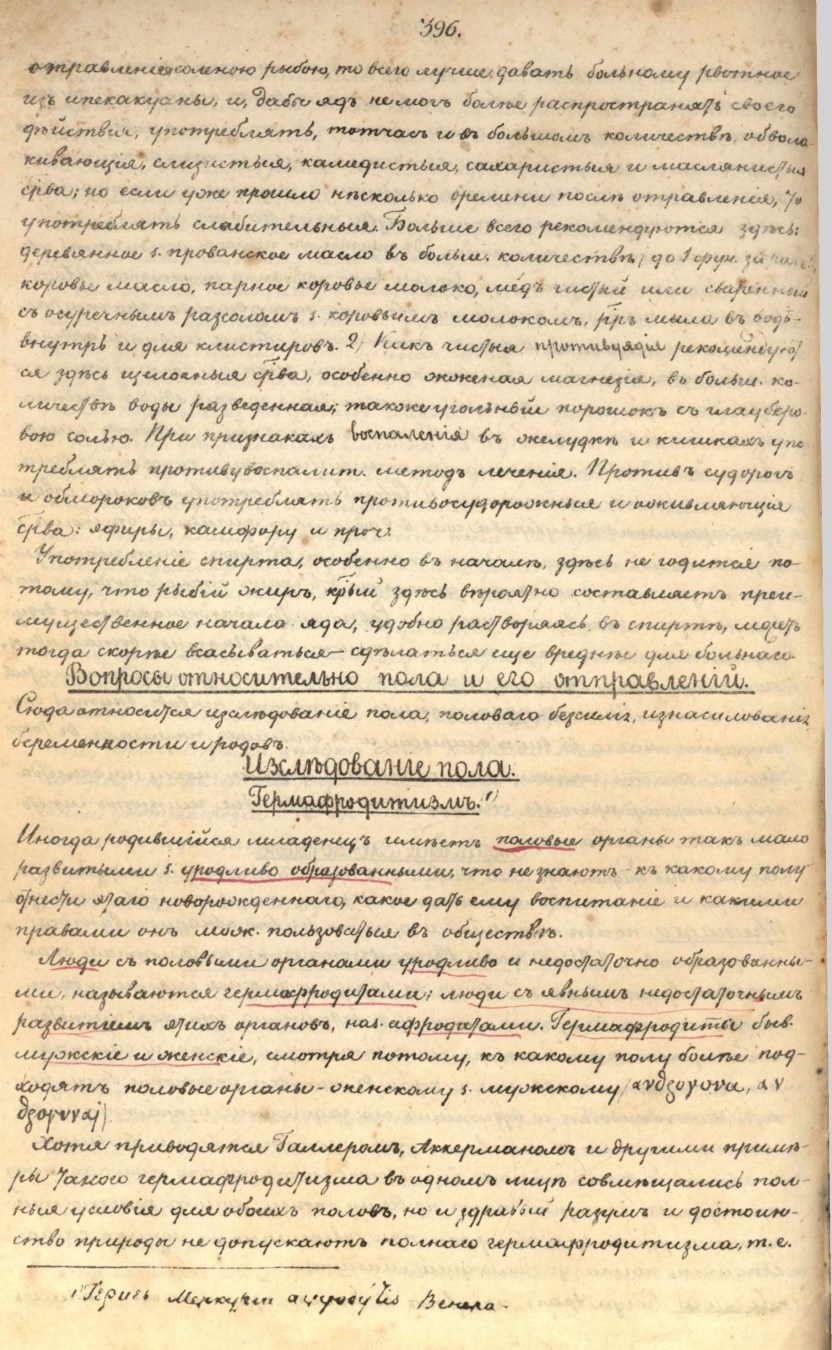 396.
отравленіе соленою рыбою, то всего лучше давать больному рвотное
изъ ипекакуаны, и, дабы ядъ не могъ болѣе распространять своего
дѣйствія, употреблять, тотчасъ и въ большомъ количествѣ, обвола-
кивающія, слизистыя, камедистыя, сахаристыя и маслянистыя
срва; но если уже прошло нѣсколько времени послѣ отравленія, то
употреблять слабительныя. Больше всего рекомендуются здѣсь:
деревянное s. прованское масло въ больш. количествѣ, до 1 фун. за
коровье масло, парное коровье молоко, медъ чистый или сваренный
съ огуречнымъ разсоломъ s. коровьимъ молокомъ, ррѣ мыла въ водѣ
внутрь и для клистировъ. 2) Какъ чистыя противуядія рекоменду-
ся здѣсь щелочныя срва, особенно жженая магнезія, въ больш. ко-
личествѣ воды разведенная; также угольный порошокъ съ глауберо-
вою солью. При признакахъ воспаленія въ желудкѣ и кишкахъ упо-
треблять противувоспалит. методъ леченія. Противъ судорогъ
и обмороковъ употреблять противосудорожныя и оживляющія
срва: эфиры, камфору и проч.
Употребленіе спирта, особенно въ началѣ, здѣсь не годится по-
тому, что рыбій жиръ, крый здѣсь вѣроятно составляетъ преи-
мущественное начало яда, удобно растворяясь въ спиртѣ, можетъ
тогда скорѣе всасываться – сдѣлаться еще вреднѣе для больнаго.
Вопросы относительно пола и его отправленій.
Сюда относится изслѣдованіе пола, половаго безсилія, изнасилованія,
беременности и родовъ.
Изслѣдованіе пола.
Гермафродитизмъ. 1)
Иногда родившійся младенецъ имѣетъ половые органы такъ мало
развитыми s. уродливо образованными, что не знаютъ къ какому полу
отнести этаго новорожденнаго, какое дать ему воспитаніе и какими
правами онъ мож. пользоваться въ обществѣ.
Люди съ половыми органами уродливо и недостаточно образованны-
ми, называются гермафродитами; люди съ явнымъ недостаточнымъ
развитіемъ этихъ органовъ, наз. афродитами. Гермафродиты быв.
мужскіе и женскіе, смотря потому, къ какому полу болѣе под-
ходятъ половые органы – женскому s. мужскому
Хотя приводятся Галлеромъ, Аккерманомъ и другими примѣ-
ры такого гермафродитизма въ одномъ лицѣ совмѣщались пол-
ныя условія для обоихъ половъ, но и здравый разумъ и достоин-
ство природы не допускаютъ полнаго гермафродитизма, т. е.
1) Гермесъ Меркурій Венера.